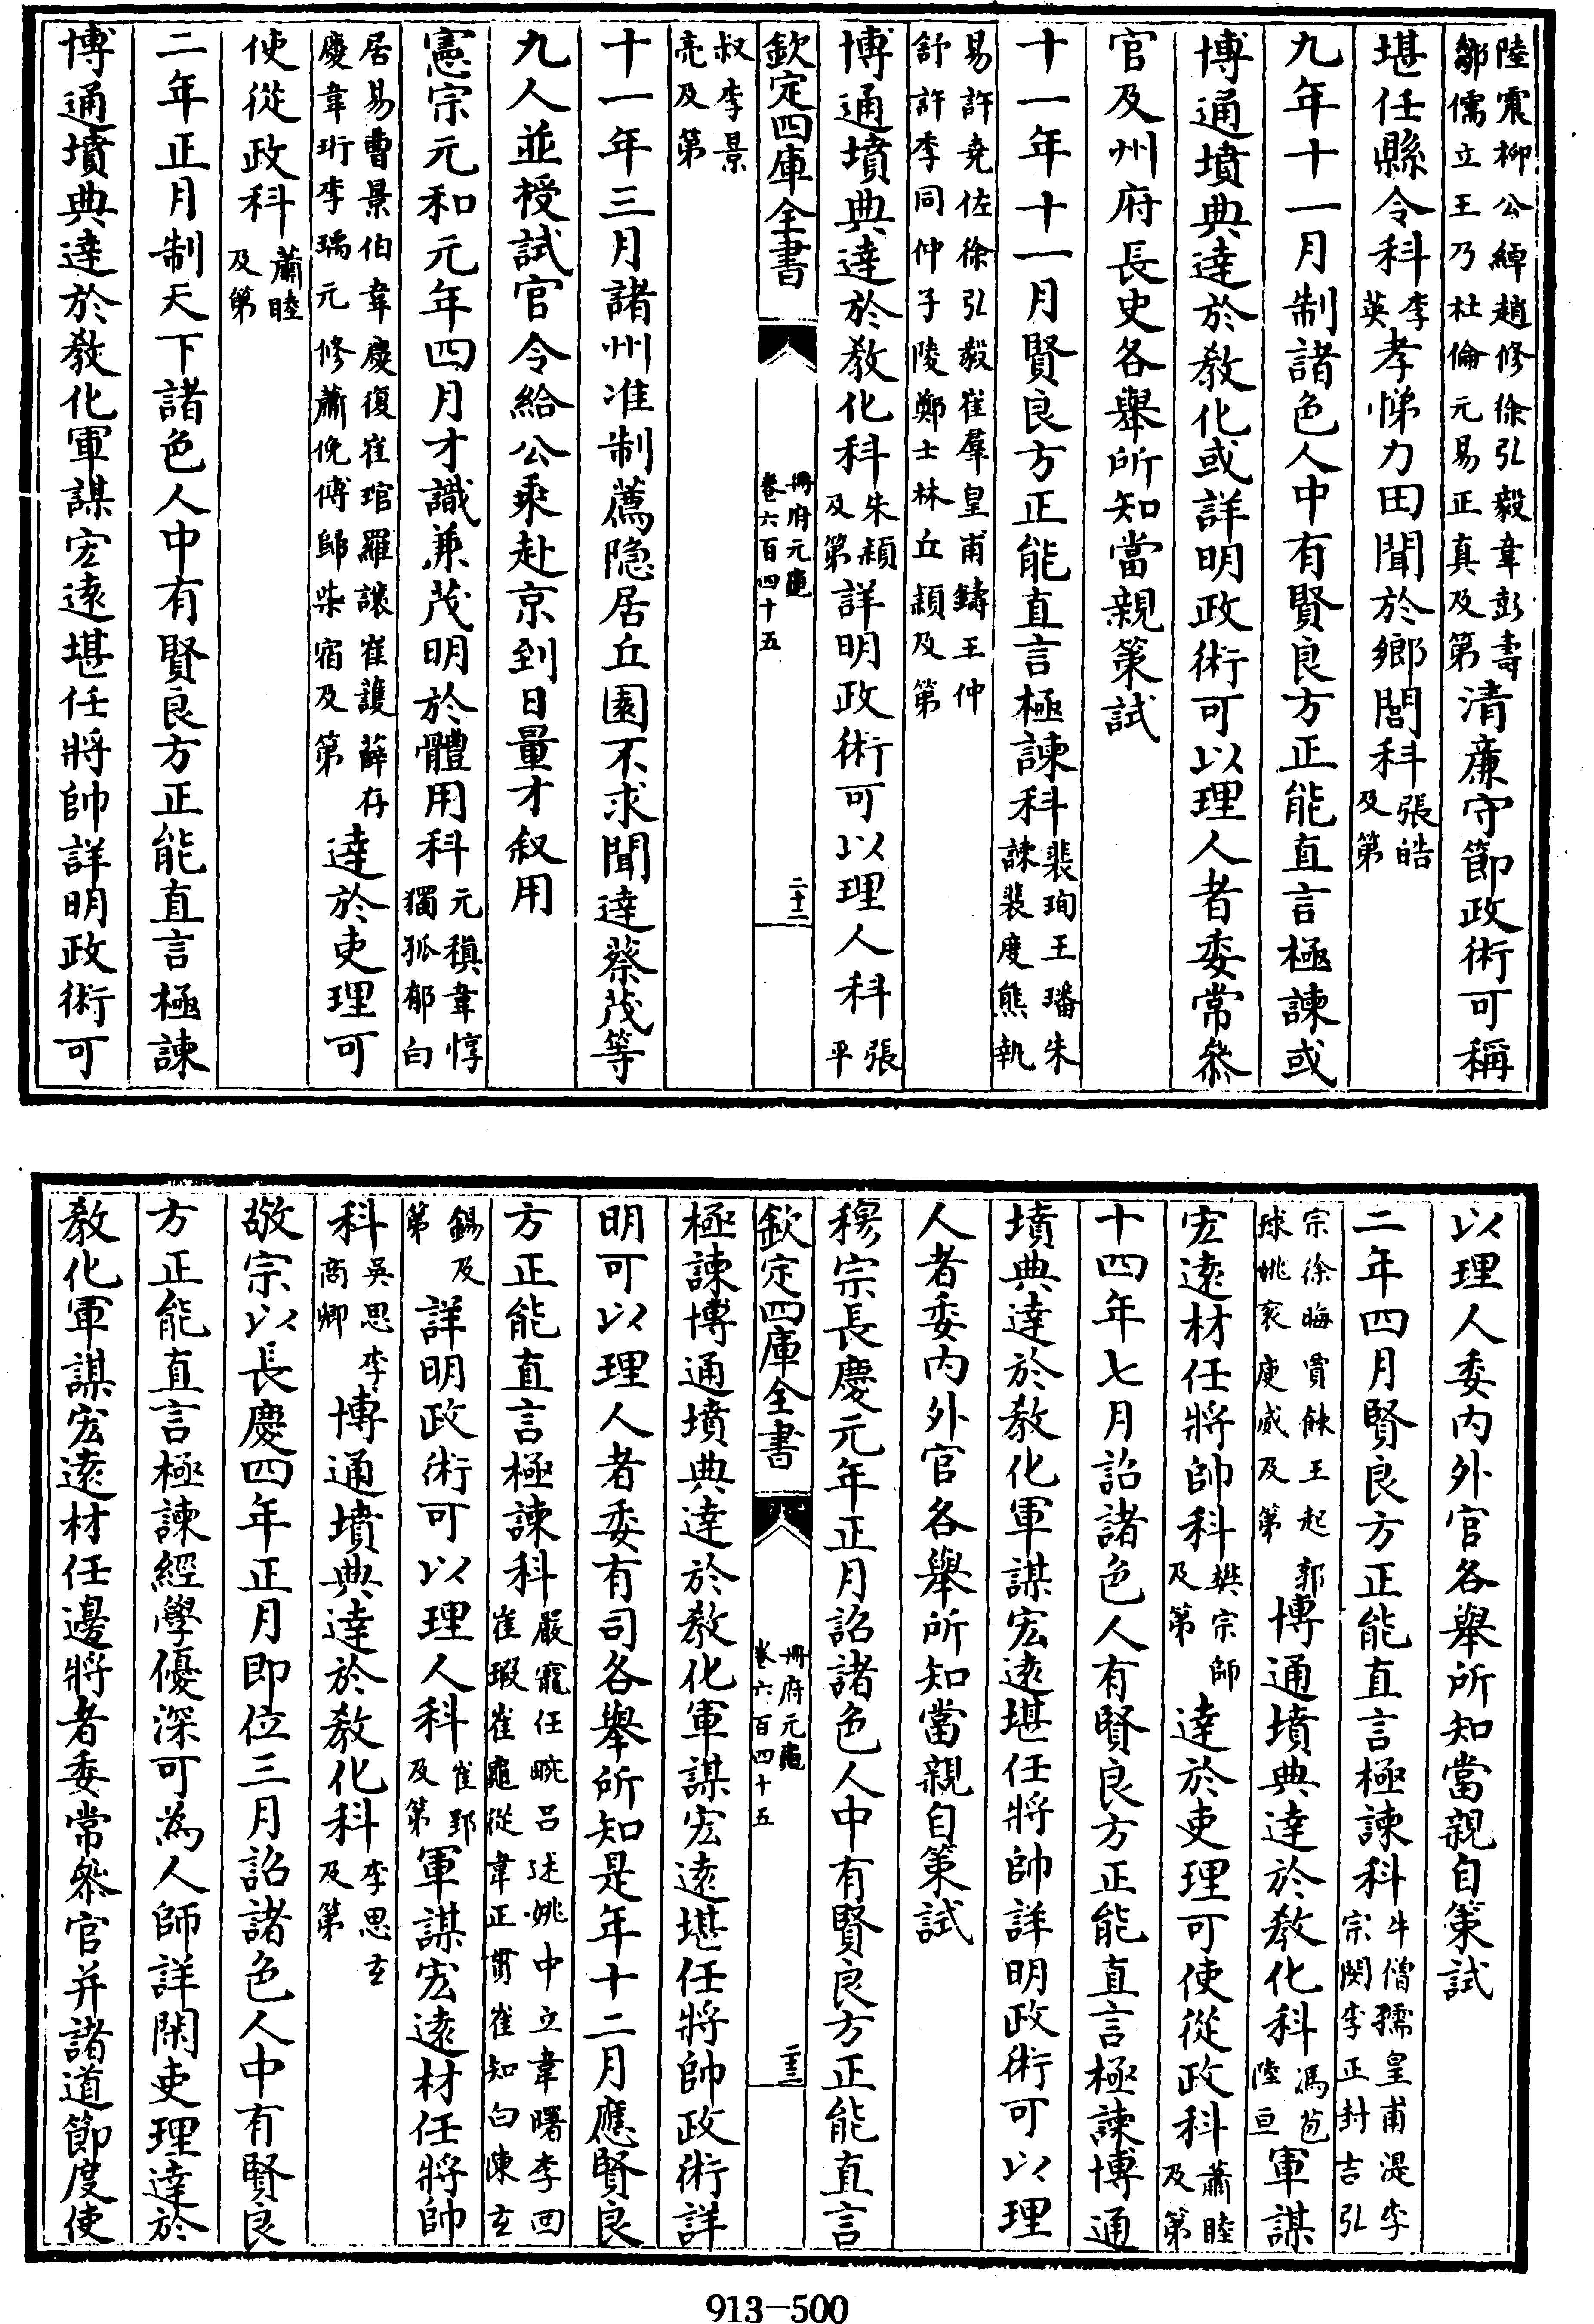 陸震柳公綽趙修徐弘毅韋彭壽鄒儒立王乃杜倫元易正真及第清廉守節政術可稱
堪任縣令科李英孝悌力田聞於鄉閭科張皓及第
九年十一月制諸色人中有賢良方正能直言極諫或
博通墳典達於教化或詳明政術可以理人者委常叅
官及州府長史各舉所知當親策試
十一年十一月賢良方正能直言極諫科裴珣王璠朱諫裴度熊執
易許堯佐徐弘毅崔羣皇甫鏄王仲舒許季同仲子陵鄭士林丘穎及第
博通墳典達於教化科朱穎及第詳明政術可以理人科張平
欽定四庫全書 冊府元龜卷六百四十五 二十二
叔李景亮及第
十一年三月諸州准制薦隱居丘園不求聞達蔡茂等
九人並授試官令給公乘赴京到日量才叙用
憲宗元和元年四月才識兼茂明於體用科元稹韋惇獨孤郁白
居易曹景伯韋慶復崔琯羅讓崔護薛存慶韋珩李瑀元修蕭俛傅師柴宿及第達於吏理可
使從政科蕭睦及第
二年正月制天下諸色人中有賢良方正能直言極諫
博通墳典達於教化軍謀宏遠堪任將帥詳明政術可
以理人委内外官各舉所知當親自策試
二年四月賢良方正能直言極諫科牛僧孺皇甫湜李宗閔李正封吉弘
宗徐晦賈餗王起郭球姚袞庾威及第博通墳典達於教化科馮苞陸亘軍謀
宏遠材任將帥科樊宗師及第達於吏理可使從政科蕭睦及第
十四年七月詔諸色人有賢良方正能直言極諫博通
墳典達於教化軍謀宏遠堪任將帥詳明政術可以理
人者委内外官各舉所知當親自策試
穆宗長慶元年正月詔諸色人中有賢良方正能直言
欽定四庫全書 冊府元龜卷六百四十五 二十三
極諫博通墳典達於教化軍謀宏遠堪任將帥政術詳
明可以理人者委有司各舉所知是年十二月應賢良
方正能直言極諫科嚴寵任畹吕述姚中立韋曙李回崔瑕崔龜從韋正貫崔知白陳玄
錫及第詳明政術可以理人科崔郢及第軍謀宏遠材任將帥
科吳思李商卿博通墳典達於教化科李思玄及第
敬宗以長慶四年正月即位三月詔諸色人中有賢良
方正能直言極諫經學優深可為人師詳閑吏理達於
教化軍謀宏遠材任邊將者委常叅官并諸道節度使
913-500